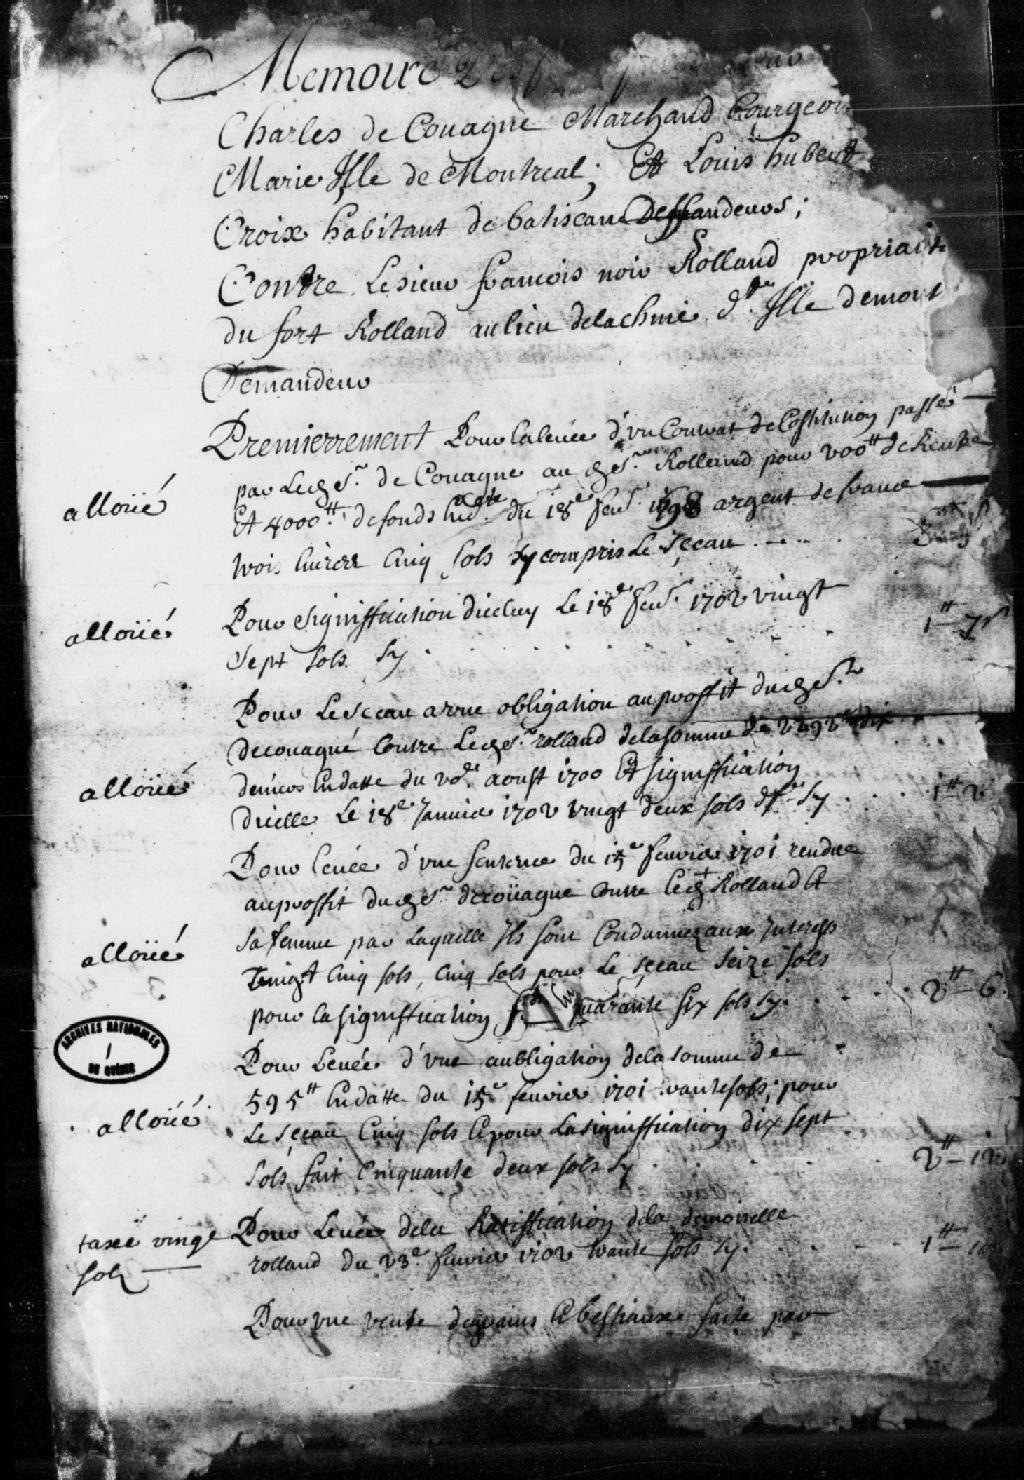 Memoire
Charles de Couagne Marchand bourgeois
Marie Isle de Montreal; Et Louis hubert
Croix habitant de batiscan Deffandeurs;
Contre Lesieur francois noir Rolland propriait
du fort Rolland au lieu delachine d.te Isle demont
Demandeur
Premierrement Pour lalevée d'un Contrat de Costitution passé
par Led Sr. de Couagne au d Sr. Rolland pour 200tt de Rente
alloüé
Et 4000tt de fonds du 18e feu. 1698 argent de france
trois livres Cinq sols sy compris le sçeau
Pour signiffication dicluy Le 18e feu. 1702 vingt
alloüé
1tt 7s
sept sols sy
Pour Le sçeau a vne obligation au proffit dud Sr.
decouagne Contre Led Sr. rolland delasomme de 2292tt dix
deniers En datte du 20e aoust 1700 Et signiffication
alloüé
dicelle Le 18e Janvier 1702 vingt deux sols sy
1tt 2
Pour levée d'vne sentence du 15e feuvrier 1701 rendue
au proffit dud Sr. decoüagne Contre led Rolland Et
sa femme par laquelle Ils sont Condamnez aux Interests
alloüé
vingt Cinq sols, Cinq sols pour Le sçeau seize sols
pour la signiffication quarante six sols sy.
2tt 6
ARCHIVES NATIONALES
DU QUÉBEC
Pour Levée d'vne aubligation delasomme de
595tt En datte du 15e feuvrier 1701 trante sols; pour
alloüé
Le sçeau Cinq sols Et pour La signiffication dix sept
sols fait Cinquante deux sols sy
2tt 12
Pour Levée dela Ratiffication dela demoiselle
taxé vingt
rolland du 23e feuvrier 1702 trante sols sy.
1tt 10
solz
Pour vne vente degrains Et bestiaux faite par